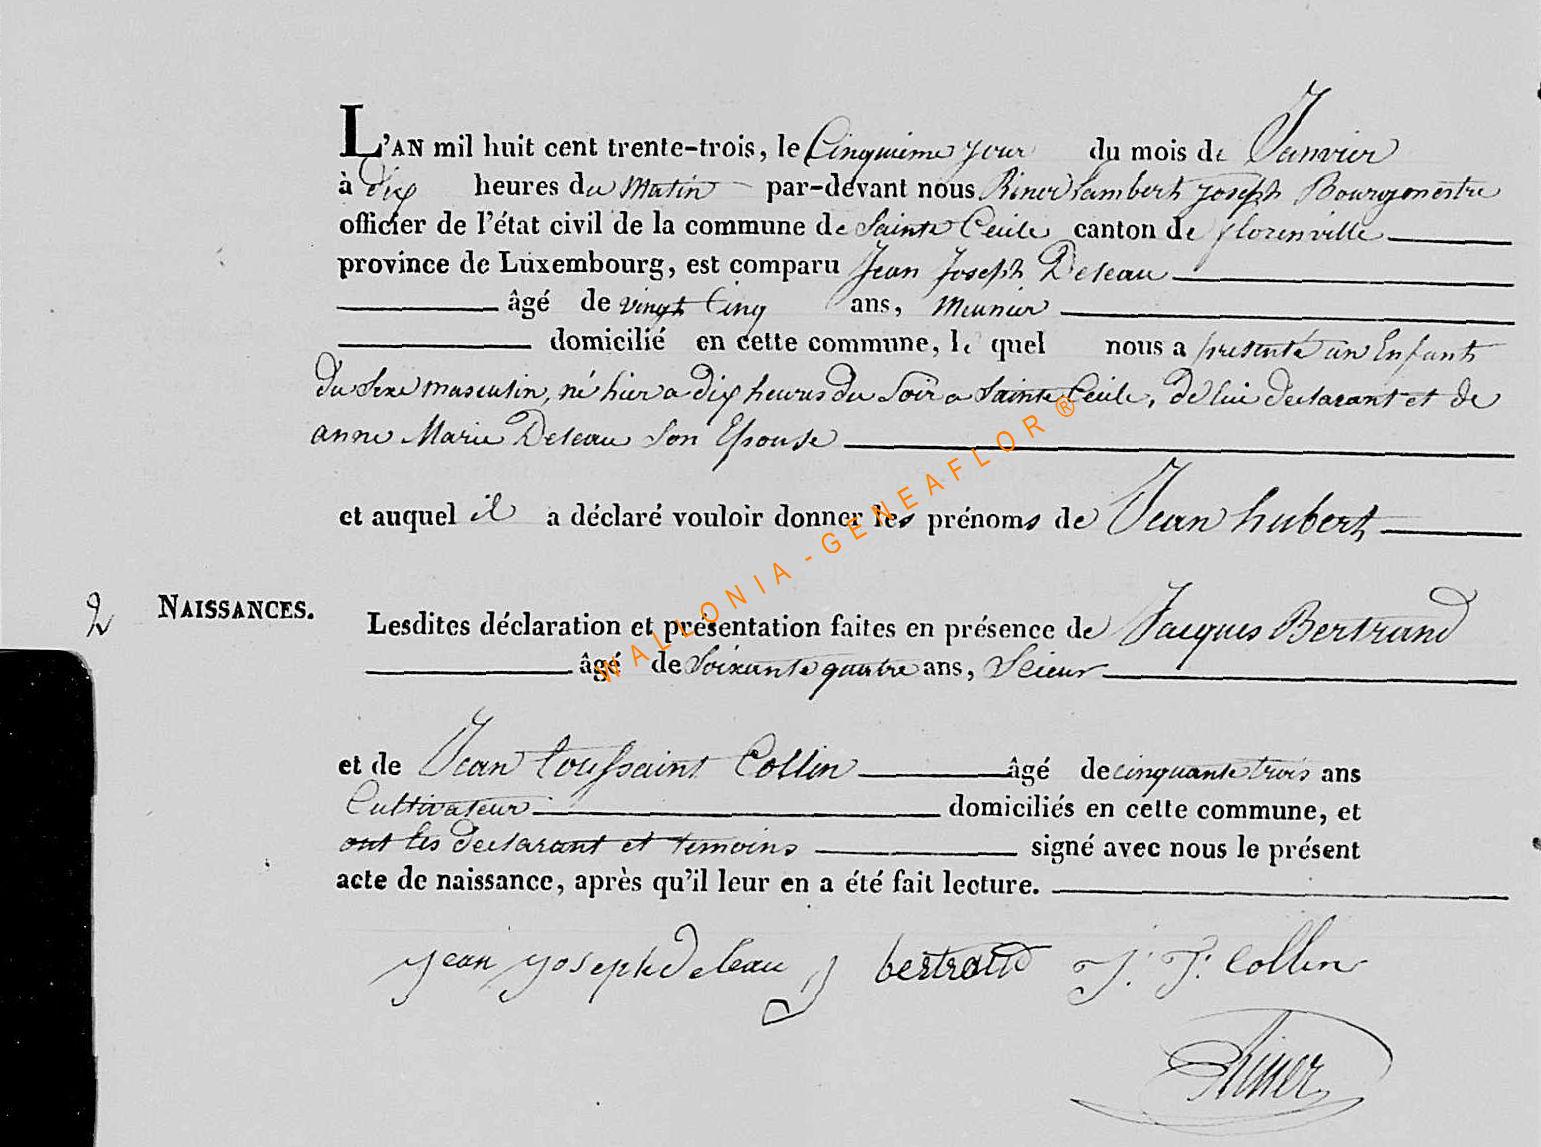 L'AN mil huit cent trente-trois, le Cinquieme jour du mois de Janvier
à dix heures du Matin par-devant nous Riner Lambert Joseph Bourgmestre
officier de l'état civil de la commune de Sainte Cecile canton de florenville
province de Luxembourg, est comparu Jean Joseph Deleau
âgé de vingt Cinq ans, Meunier
domicilié en cette commune, le quel nous a presenté un Enfant
du Sexe masculin, né hier a dix heures du Soir a Sainte Cecile, de lui declarant et de
anne Marie Deleau Son Epouse
et auquel il a déclaré vouloir donner les prénoms de Jean hubert
2 NAISSANCES.
Lesdites déclaration et présentation faites en présence de Jacques Bertrand
âgé de Soixante quatre ans, Scieur
et de Jean Toussaint Collin âgé de cinquante trois ans
Cultivateur domiciliés en cette commune, et
ont les declarant et temoins signé avec nous le présent
acte de naissance, après qu'il leur en a été fait lecture.
jean joseph deleau j bertrand J. T. Collin
Riner
WALLONIA-GENEAFLOR®